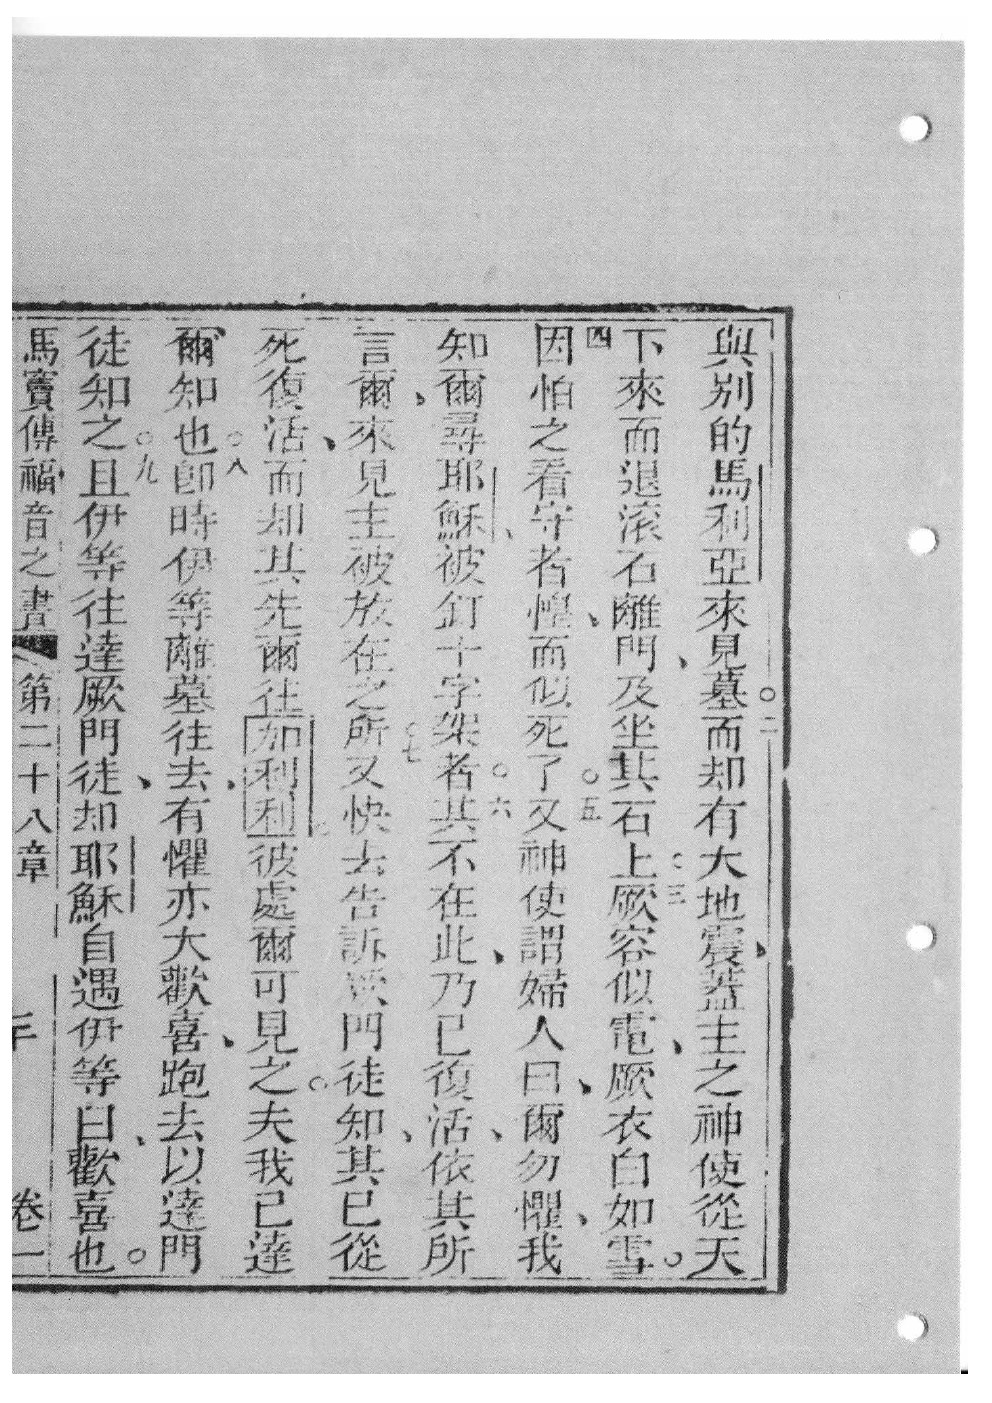 與別的馬利亞來見墓○二而却有大地震、葢主之神使從天
下來而退滚石離門、及坐其石上○三厥容似電、厥衣白如雪○
四因怕之看守者惶、而似死了○五又神使謂婦人曰、爾勿懼、我
知爾尋耶穌、被釘十字架者○六其不在此、乃已復活、依其所
言爾、來見主被放在之所○七又快去告訴厥門徒知、其已從
死復活、而却其先爾往加利利○彼處爾可見之○夫我已達
爾知也○八卽時伊等離墓往去、有懼亦大歡喜、跑去以達門
徒知之○九且伊等往達厥門徒、却耶穌自遇伊等曰、歡喜也○
馬竇傳福音之書 第二十八章 卷一